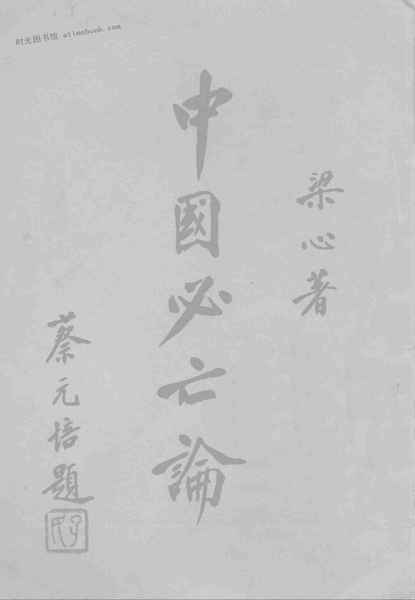 时光图书馆 atimebook.com
梁心著
中國必亡論
蔡元培題